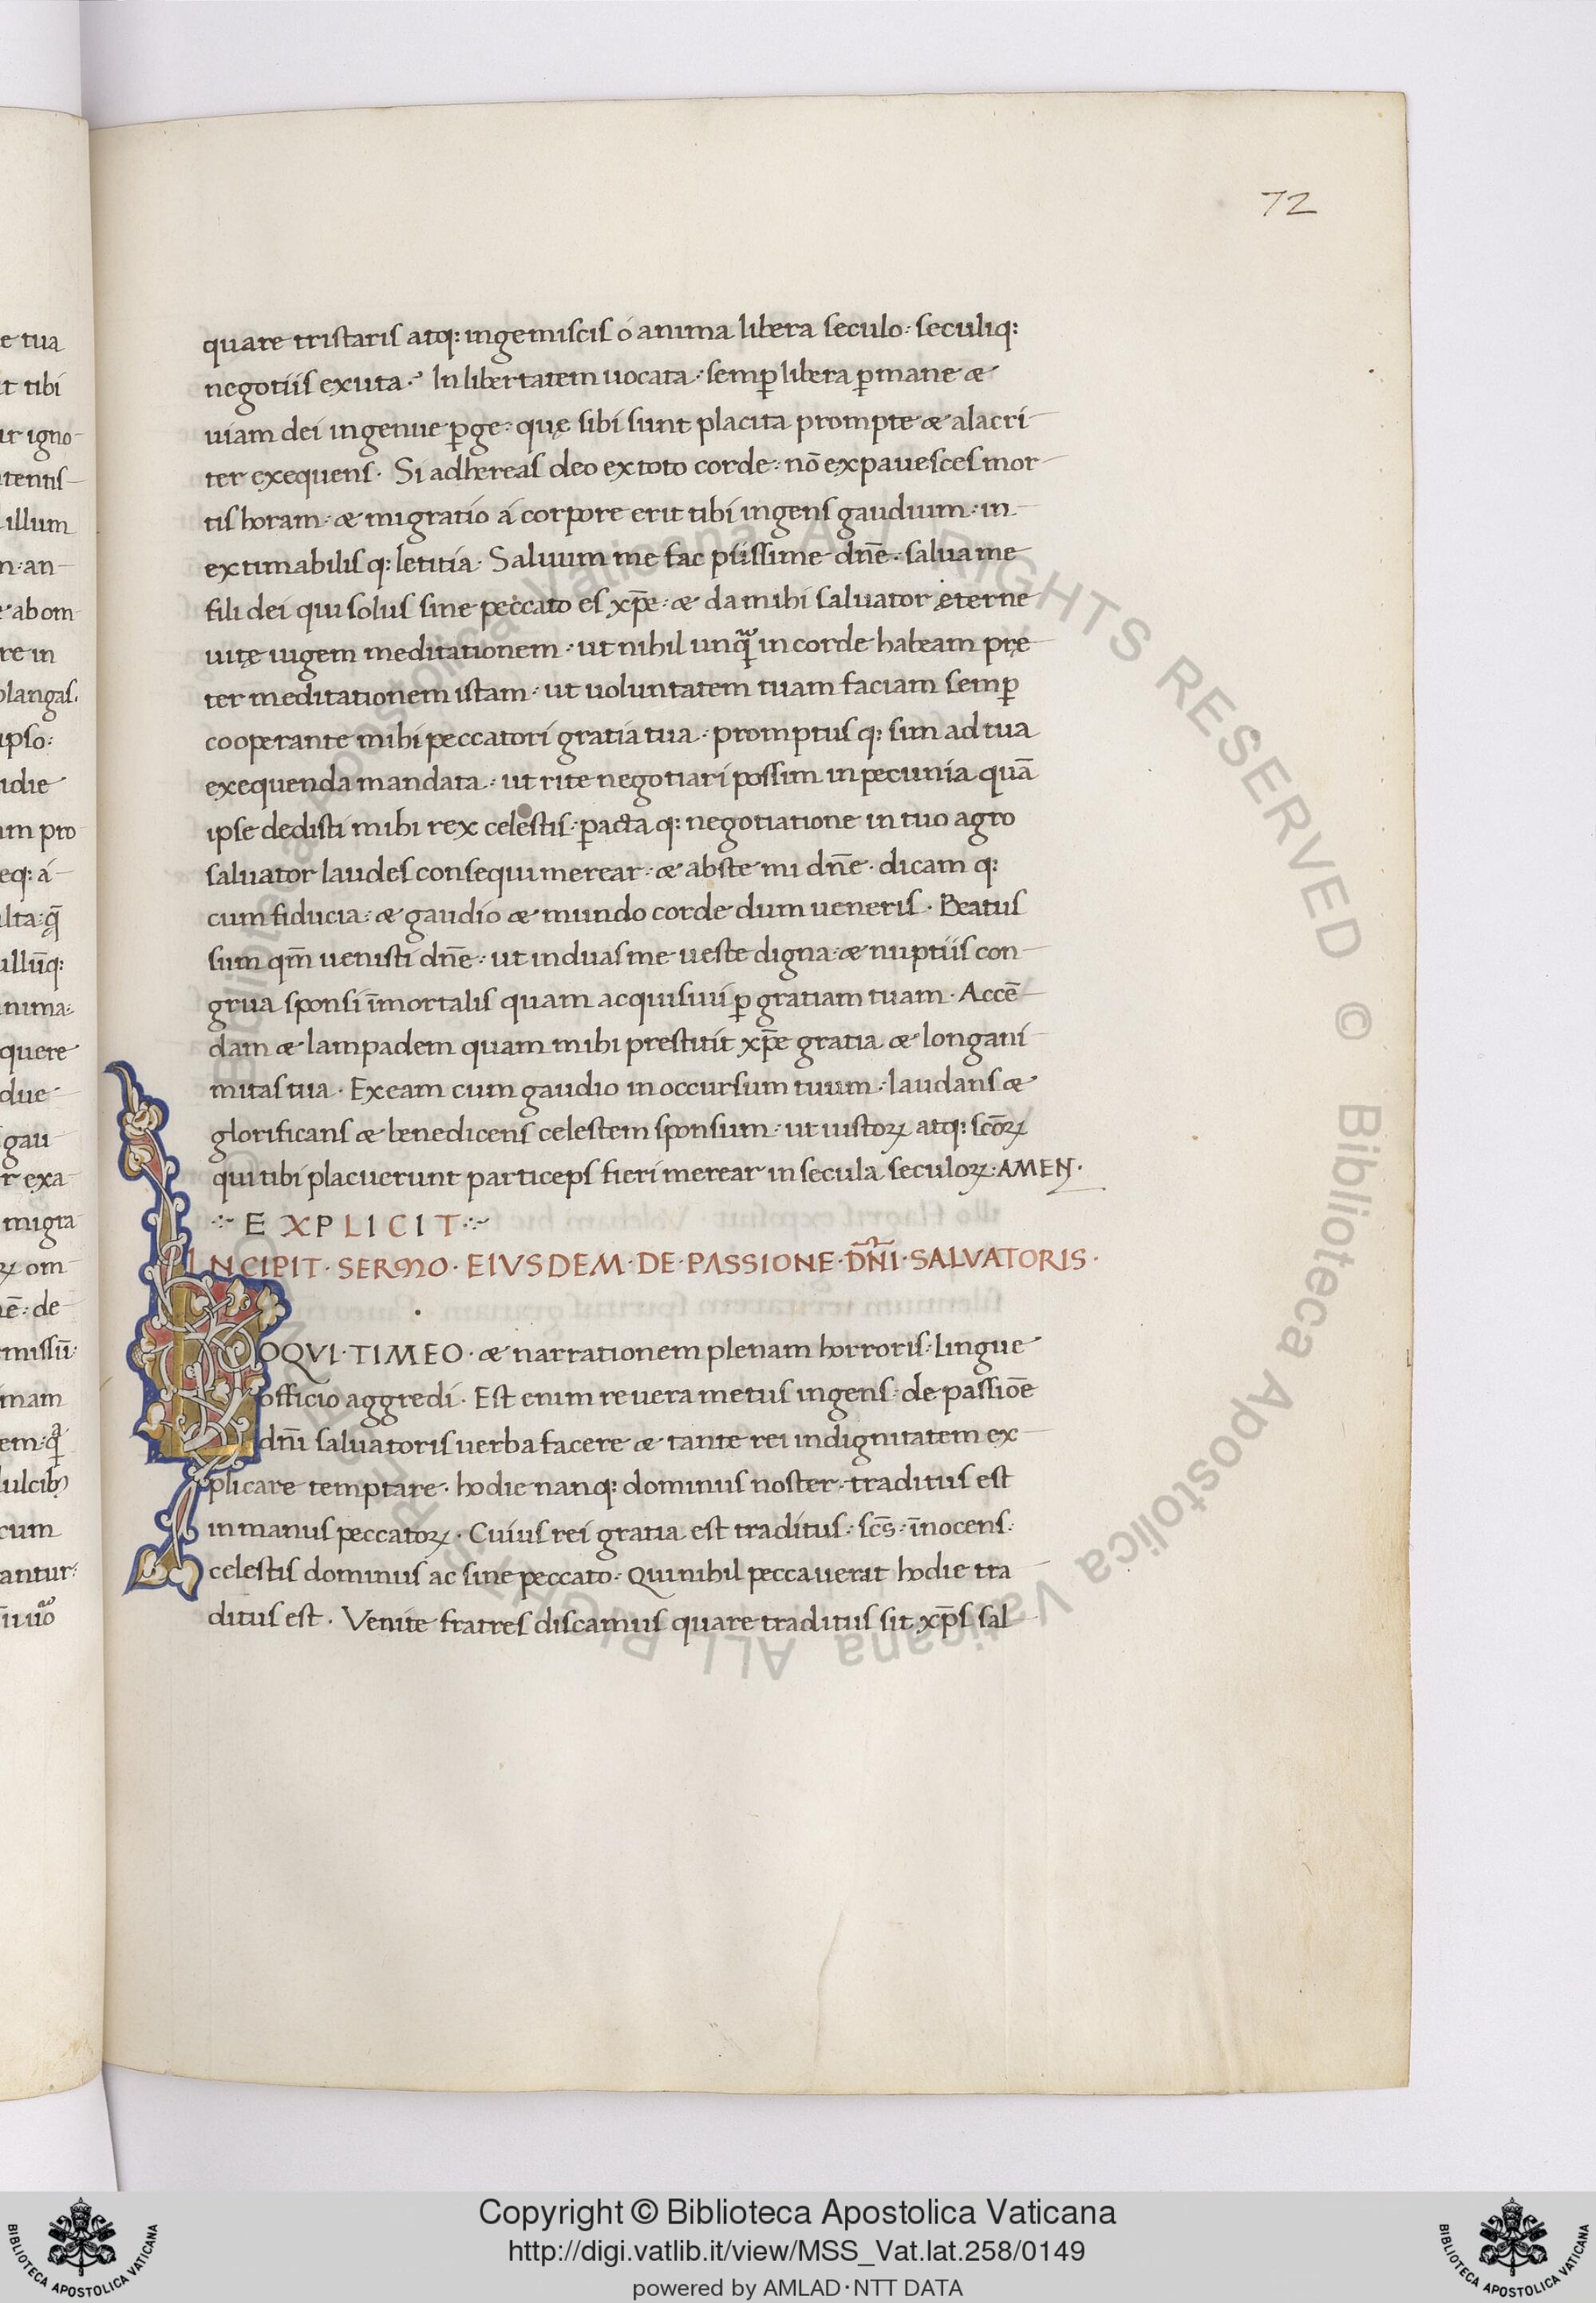 72
quare tristaris atq: ingemiscis ó anima libera seculo: seculiq:
negotiis exuta. In libertatem uocata: semꝑ libera ꝑmane æ
uiam dei ingenue ꝑge: quę sibi sunt placita prompte æ alacri
ter exequens. Si adhereas deo ex toto corde: nō expauesces mor
tis horam: æ migratio á corpore erit tibi ingens gaudium: in
extimabilis q: letitia. Saluum me fac piissime dn̄e: salua me
fili dei qui solus sine peccato es xp̄e: æ da mihi saluator ęterne
uitę iugem meditationem: ut nihil unq̃ in corde habeam prę
ter meditationem istam: ut uoluntatem tuam faciam semꝑ
cooperante mihi peccatori gratia tua: promptus q: sim ad tua
exequenda mandata: ut rite negotiari possim in pecunia quā
ipse dedisti mihi rex celestis: ꝑacta q: negotiatione in tuo agro
saluator laudes consequi merear: æ abs te mi dn̄e. dicam q:
cum fiducia: æ gaudio æ mundo corde dum ueneris. Beatus
sum qm̄ uenisti dn̄e: ut induas me ueste digna: æ nuptiis con
grua sponsi īmortalis quam acquisiui ꝑ gratiam tuam. Accē
dam æ lampadem quam mihi prestitit xp̄e gratia æ longani
mitas tua. Exeam cum gaudio in occursum tuum: laudans æ
glorificans æ benedicens celestem sponsum: ut iustoꝝ atq: scōꝝ
qui tibi placuerunt particeps fieri merear in secula seculoꝝ: AMEN.
EXPLICIT
INCIPIT · SERMO · EIVSDEM · DE · PASSIONE · DN̄I · SALVATORIS ·
LOQVI · TIMEO · æ narrationem plenam horroris: lingue
officio aggredi. Est enim reuera metus ingens: de passiōe
dn̄i saluatoris uerba facere æ tante rei indignitatem ex
plicare temptare. hodie nanq: dominus noster: traditus est
in manus peccatoꝝ. Cuius rei gratia est traditus: scs̄: īnocens:
celestis dominus ac sine peccato. Qui nihil peccauerat hodie tra
ditus est. Venite fratres discamus quare traditus sit xp̄s sal
Copyright © Biblioteca Apostolica Vaticana
http://digi.vatlib.it/view/MSS_Vat.lat.258/0149
powered by AMLAD·NTT DATA